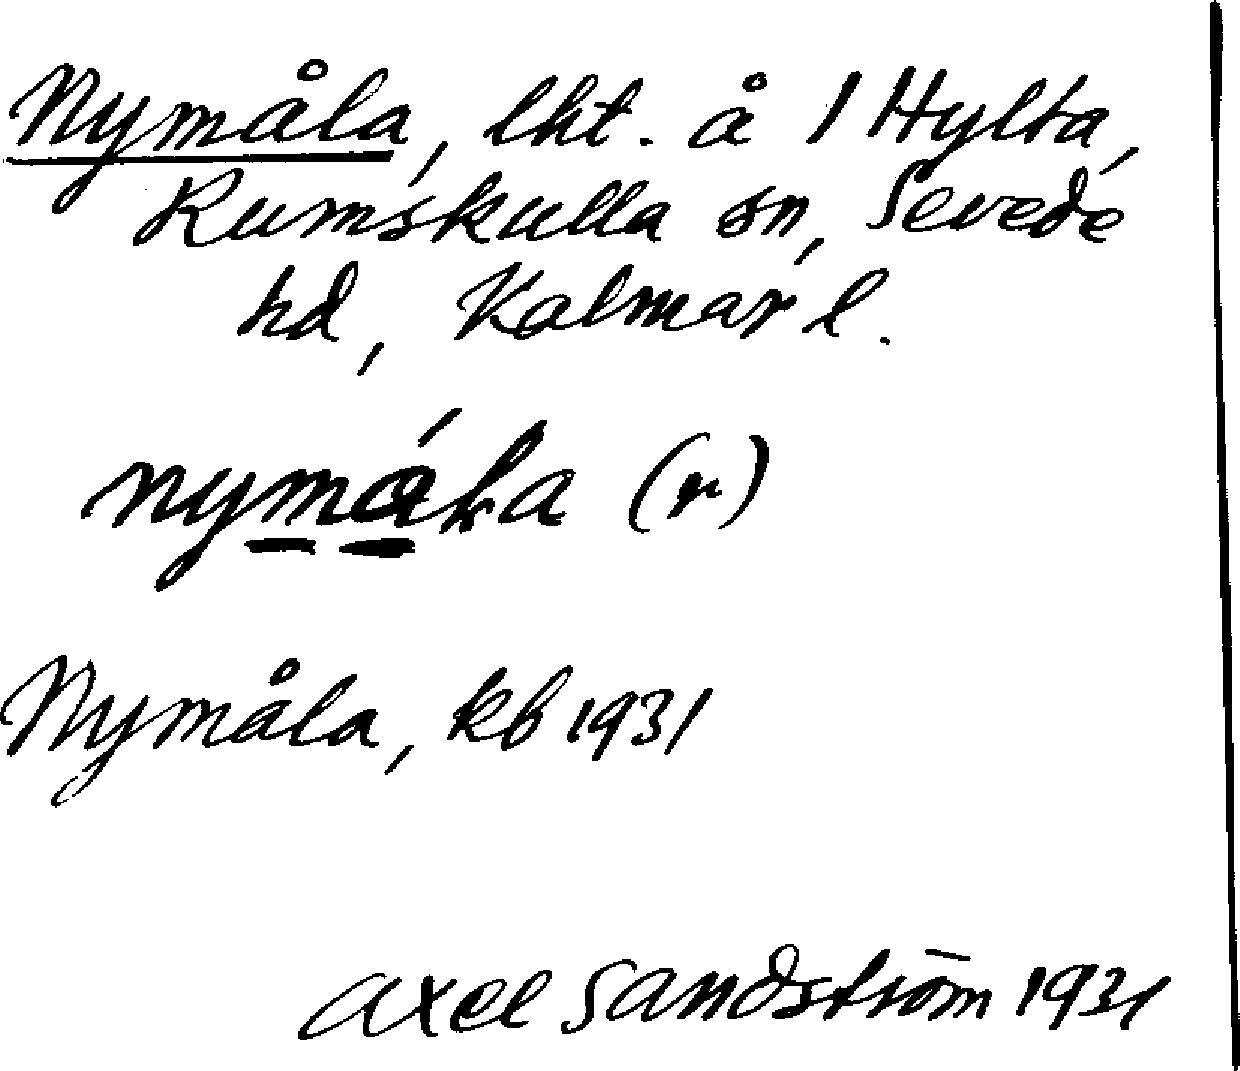 Nymåla, lht. å 1 Hylta,
Rumskulla sn, Sevede
hd, Kalmar l.
(r)
Nymåla, kb 1931
Axel Sandström 1931